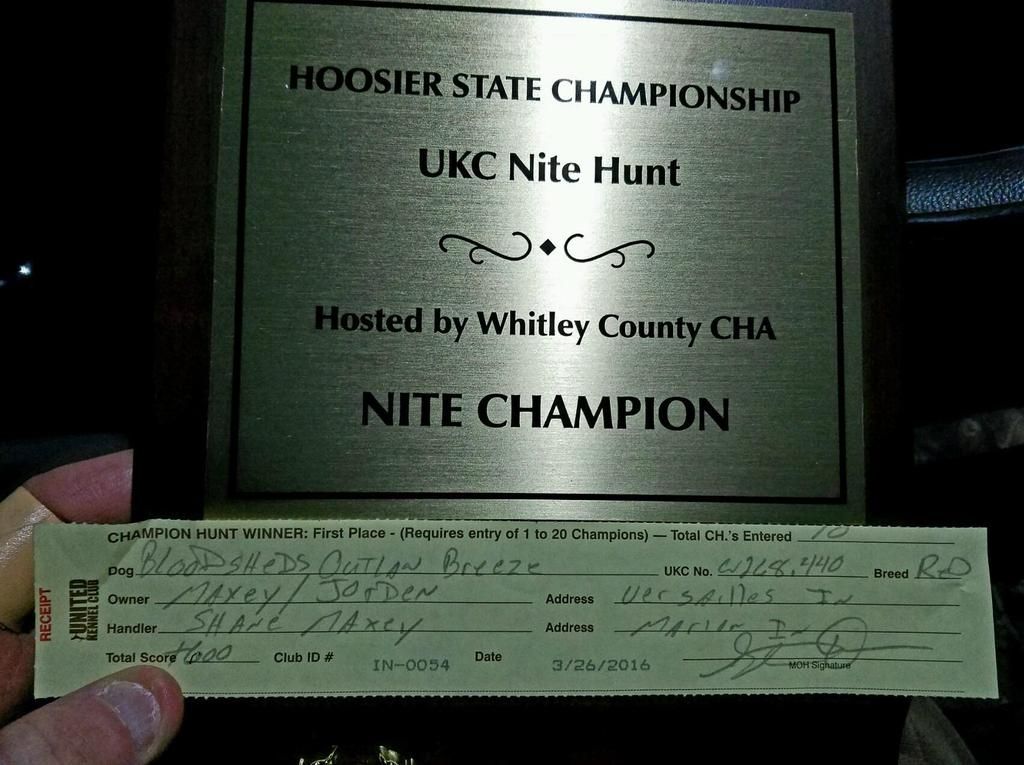 HOOSIER STATE CHAMPIONSHIP
UKC Nite Hunt
Hosted by Whitley County CHA
NITE CHAMPION
CHAMPION HUNT WINNER: First Place - (Requires entry of 1 to 20 Champions) — Total CH.'s Entered 10
Dog BLOODSHEDS OUTLAW Breeze UKC No. Breed RED
Owner MAXEY / JORDEN Address VERSAILLES IN
Handler SHANE MAXEY Address MARION IN
Total Score Club ID # IN-0054 Date 3/26/2016 MOH Signature
RECEIPT
UNITED
KENNEL CLUB